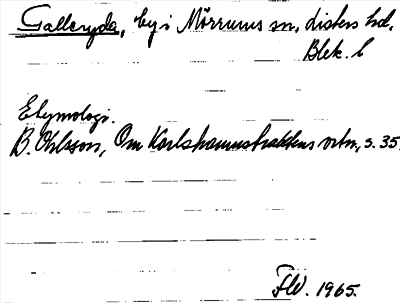 Galleryda, by i Mörrums sn, Listers hd,
Blek. l
Etymologi.
B. Ohlsson, Om Karlshamnstraktens ortn, s. 35.
FW. 1965.